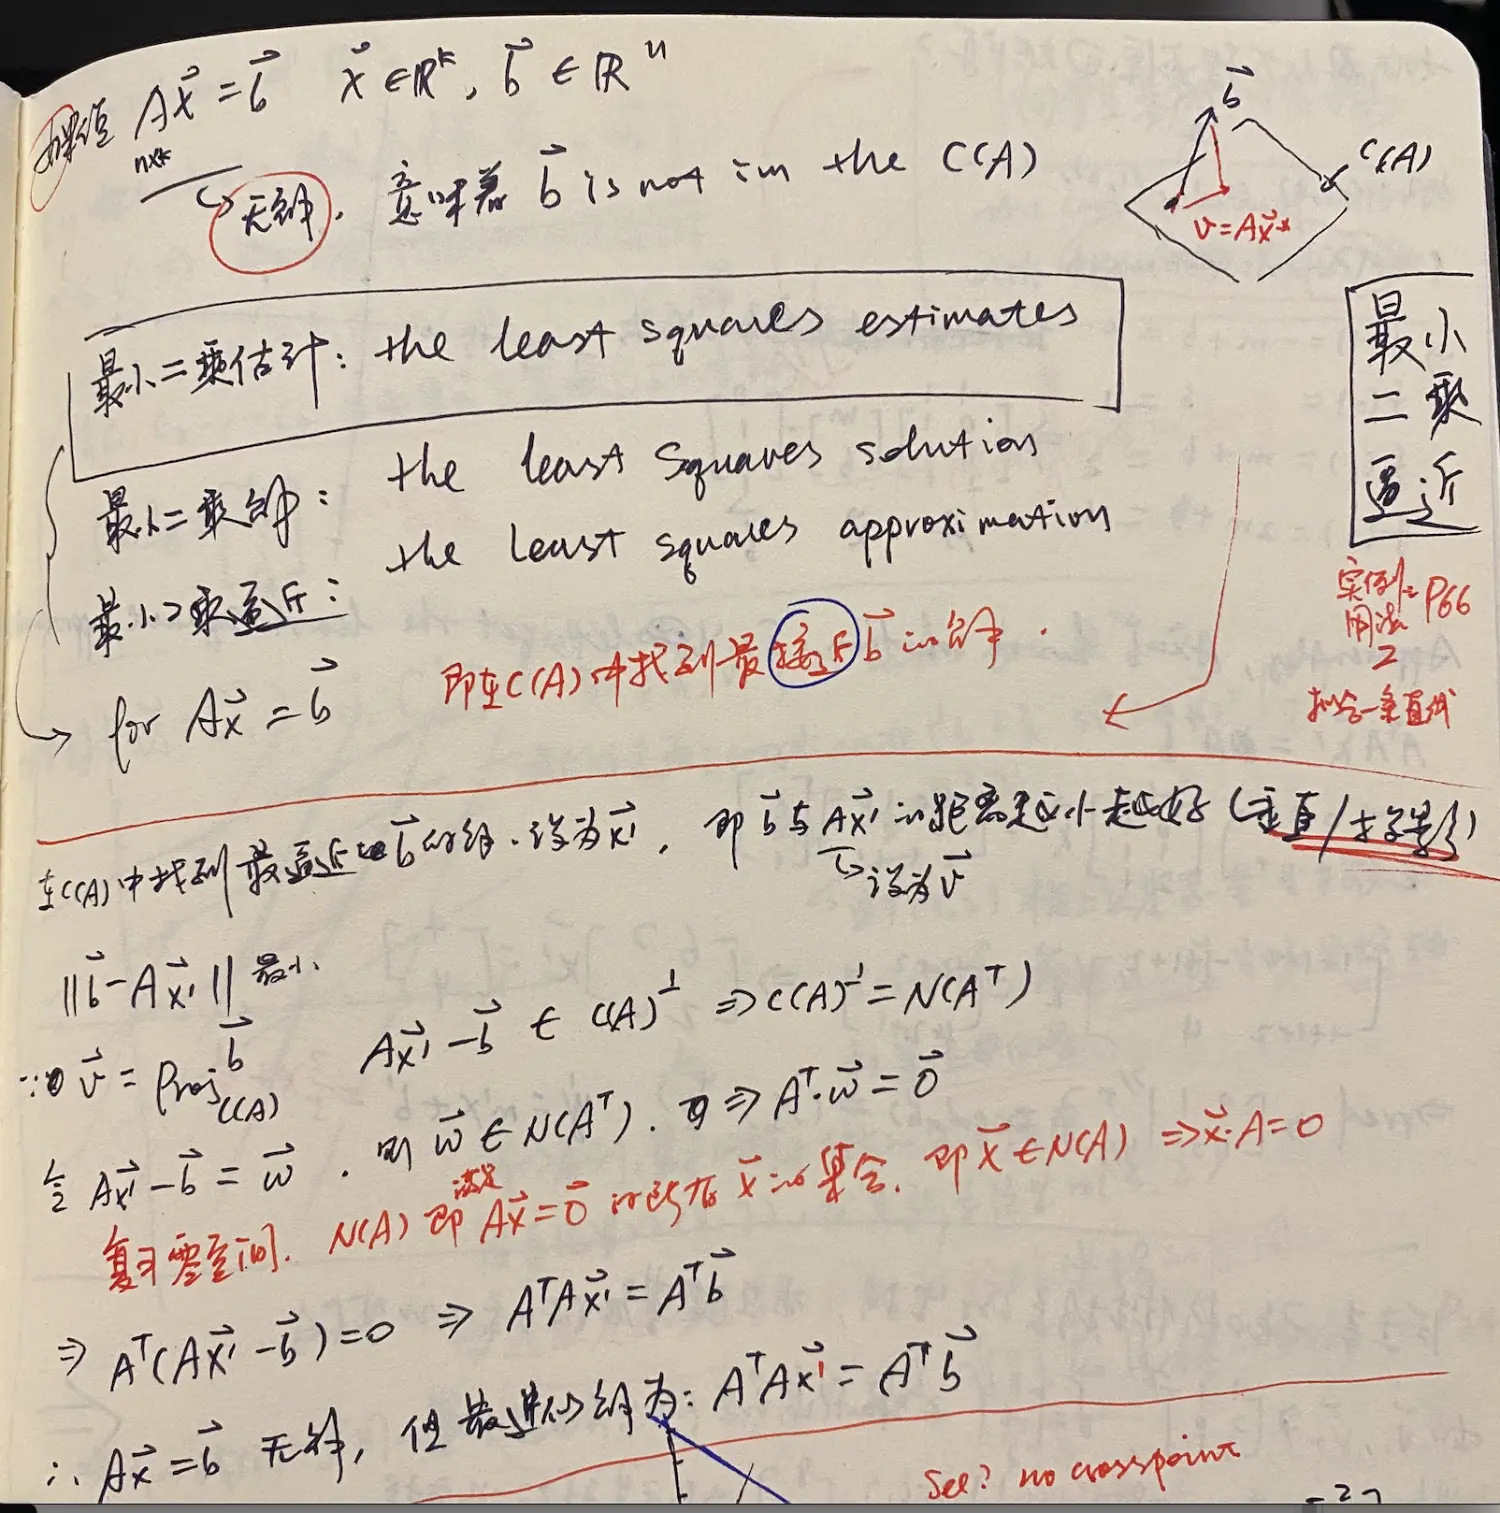 如果值 A\vec{x} = \vec{b}  \vec{x} ∈ ℝ^k, \vec{b} ∈ ℝ^n
n×k
无解, 意味着 \vec{b} is not in the C(A)
\vec{b}
C(A)
v = A\vec{x}*
最小二乘估计: the least squares estimates
最小二乘解: the least squares solution
最小二乘逼近: the least squares approximation
for A\vec{x} = \vec{b}
即在C(A)中找到最接近\vec{b}的解.
最小
二乘
逼近
实例: P66
用法
2
拟合一条直线
在C(A)中找到最逼近\vec{b}的解. 设为\vec{x'}, 即\vec{b}与A\vec{x'}的距离越小越好(垂直/投影)
设为\vec{v}
||\vec{b} - A\vec{x'}|| 最小
∵ \vec{v} = Proj_{C(A)}^{\vec{b}}  A\vec{x'} - \vec{b} ∈ C(A)^⊥ ⇒ C(A)^⊥ = N(A^T)
令 A\vec{x'} - \vec{b} = \vec{w}. 则 \vec{w} ∈ N(A^T). ⇒ A^T·\vec{w} = \vec{0}
复习零空间. N(A) 即满足 A\vec{x} = \vec{0} 的所有\vec{x}的集合. 即\vec{x} ∈ N(A) ⇒ \vec{x}·A = 0
⇒ A^T(A\vec{x'} - \vec{b}) = 0 ⇒ A^TA\vec{x'} = A^T\vec{b}
∴ A\vec{x} = \vec{b} 无解, 但最近似解为: A^TA\vec{x'} = A^T\vec{b}
See? no crosspoint